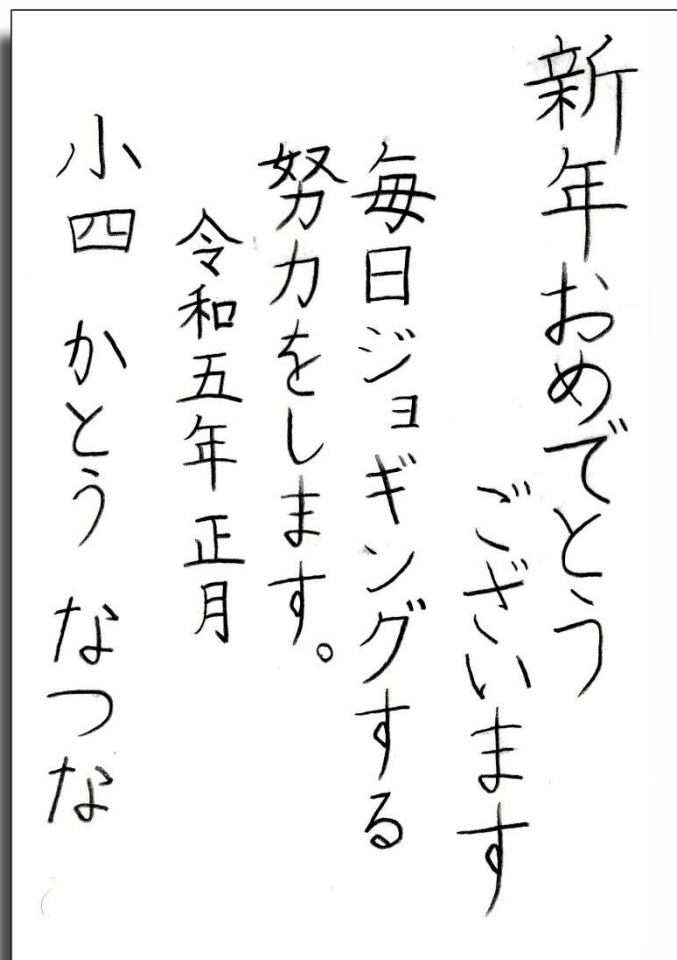 新年おめでとう
ございます
毎日ジョギングする
努力をします。
令和五年正月
小四 かとう なつな